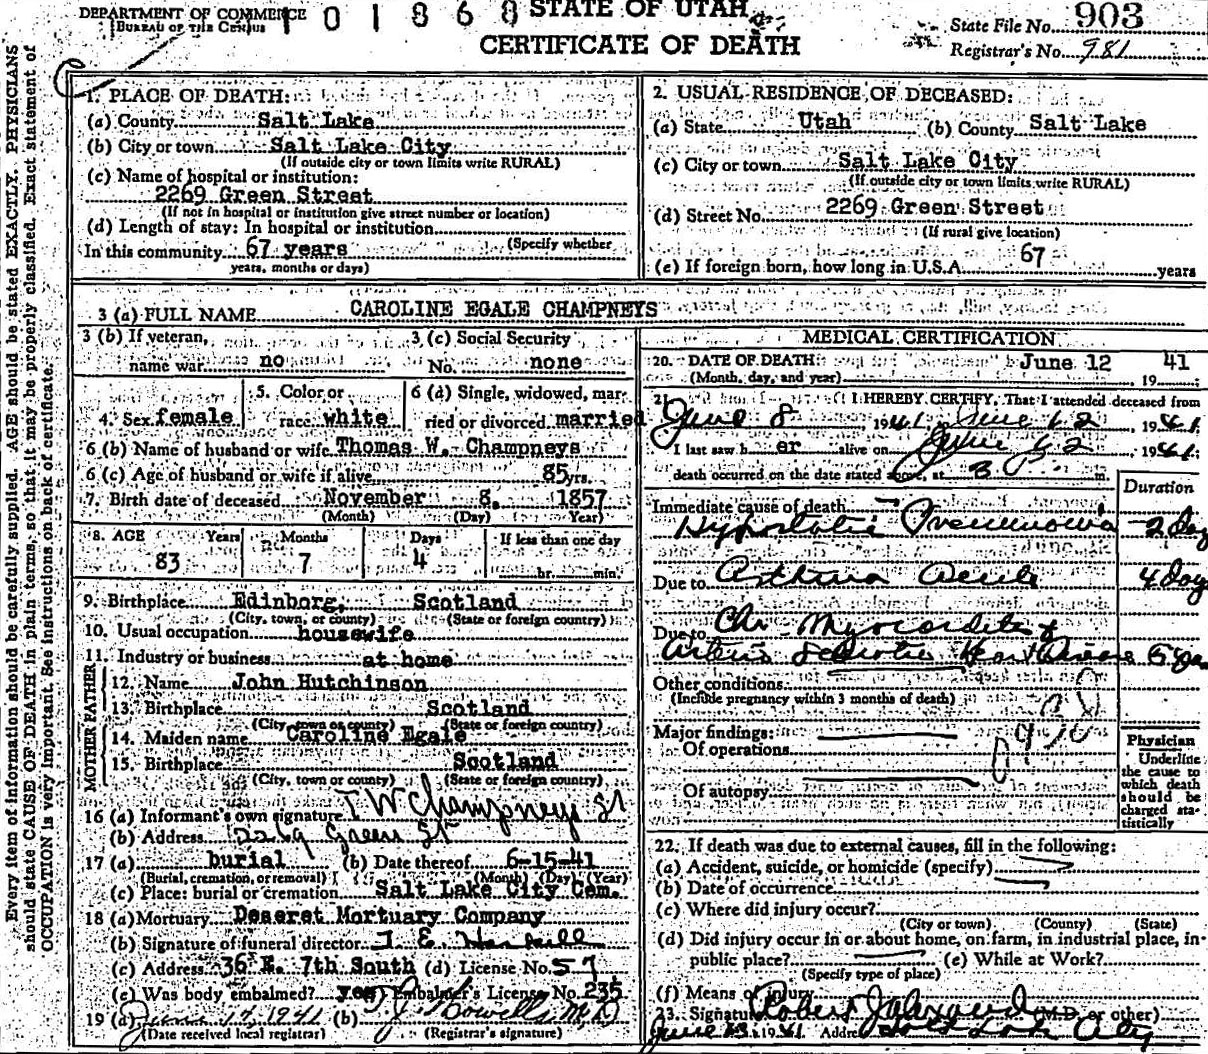 DEPARTMENT OF COMMERCE
BUREAU OF THE CENSUS
0 1 8 6 8
STATE OF UTAH
CERTIFICATE OF DEATH
State File No. 903
Registrar's No. 981
Every item of information should be carefully supplied. AGE should be stated EXACTLY. PHYSICIANS
should state CAUSE OF DEATH in plain terms, so that it may be properly classified. Exact statement of
OCCUPATION is very important. See instructions on back of certificate.
1. PLACE OF DEATH:
(a) County Salt Lake
(b) City or town Salt Lake City
(If outside city or town limits write RURAL)
(c) Name of hospital or institution:
2269 Green Street
(If not in hospital or institution give street number or location)
(d) Length of stay: In hospital or institution
(Specify whether
In this community 67 years
years, months or days)
2. USUAL RESIDENCE OF DECEASED:
(a) State Utah (b) County Salt Lake
(c) City or town Salt Lake City
(If outside city or town limits write RURAL)
(d) Street No. 2269 Green Street
(If rural give location)
(e) If foreign born, how long in U.S.A. 67 years
3 (a) FULL NAME CAROLINE EGALE CHAMPNEYS
3 (b) If veteran, name war no
3 (c) Social Security No. none
4. Sex female
5. Color or race white
6 (a) Single, widowed, married or divorced married
6 (b) Name of husband or wife Thomas W. Champneys
6 (c) Age of husband or wife if alive 85 yrs.
7. Birth date of deceased November 8, 1857
(Month) (Day) (Year)
8. AGE Years Months Days If less than one day
83 7 4 hr. min.
9. Birthplace Edinborg, Scotland
(City, town, or county) (State or foreign country)
10. Usual occupation housewife
11. Industry or business at home
FATHER
12. Name John Hutchinson
13. Birthplace Scotland
(City, town or county) (State or foreign country)
MOTHER
14. Maiden name Caroline Egale
15. Birthplace Scotland
(City, town or county) (State or foreign country)
16 (a) Informant's own signature T W Champneys
(b) Address 2269 Green St
17 (a) burial (b) Date thereof 6-15-41
(Burial, cremation, or removal) (Month) (Day) (Year)
(c) Place: burial or cremation Salt Lake City Cem.
18 (a) Mortuary Deseret Mortuary Company
(b) Signature of funeral director
(c) Address 36 E. 7th South (d) License No. 57
(e) Was body embalmed? yes Embalmer's License No. 235
19 (a) June 17, 1941 (b)
(Date received local registrar) (Registrar's signature)
MEDICAL CERTIFICATION
20. DATE OF DEATH June 12 1941
(Month, day, and year)
21. I HEREBY CERTIFY, That I attended deceased from
June 8, 1941, June 12, 1941
I last saw her alive on June 12, 1941;
death occurred on the date stated above, at 3 P. m.
Duration
Immediate cause of death
Hypostatic Pneumonia 2 day
Due to Asthma Acute 4 days
Due to Chr. Myocarditis &
Arterio Sclerotic Heart Disease 5 yrs
Other conditions
(Include pregnancy within 3 months of death)
Major findings:
Of operations
Of autopsy
Physician
Underline
the cause to
which death
should be
charged sta-
tistically
22. If death was due to external causes, fill in the following:
(a) Accident, suicide, or homicide (specify)
(b) Date of occurrence
(c) Where did injury occur?
(City or town) (County) (State)
(d) Did injury occur in or about home, on farm, in industrial place, in
public place? (e) While at Work?
(Specify type of place)
(f) Means of injury
23. Signature Robert J Alexander (M.D. or other)
June 13 1941 Address Salt Lake City